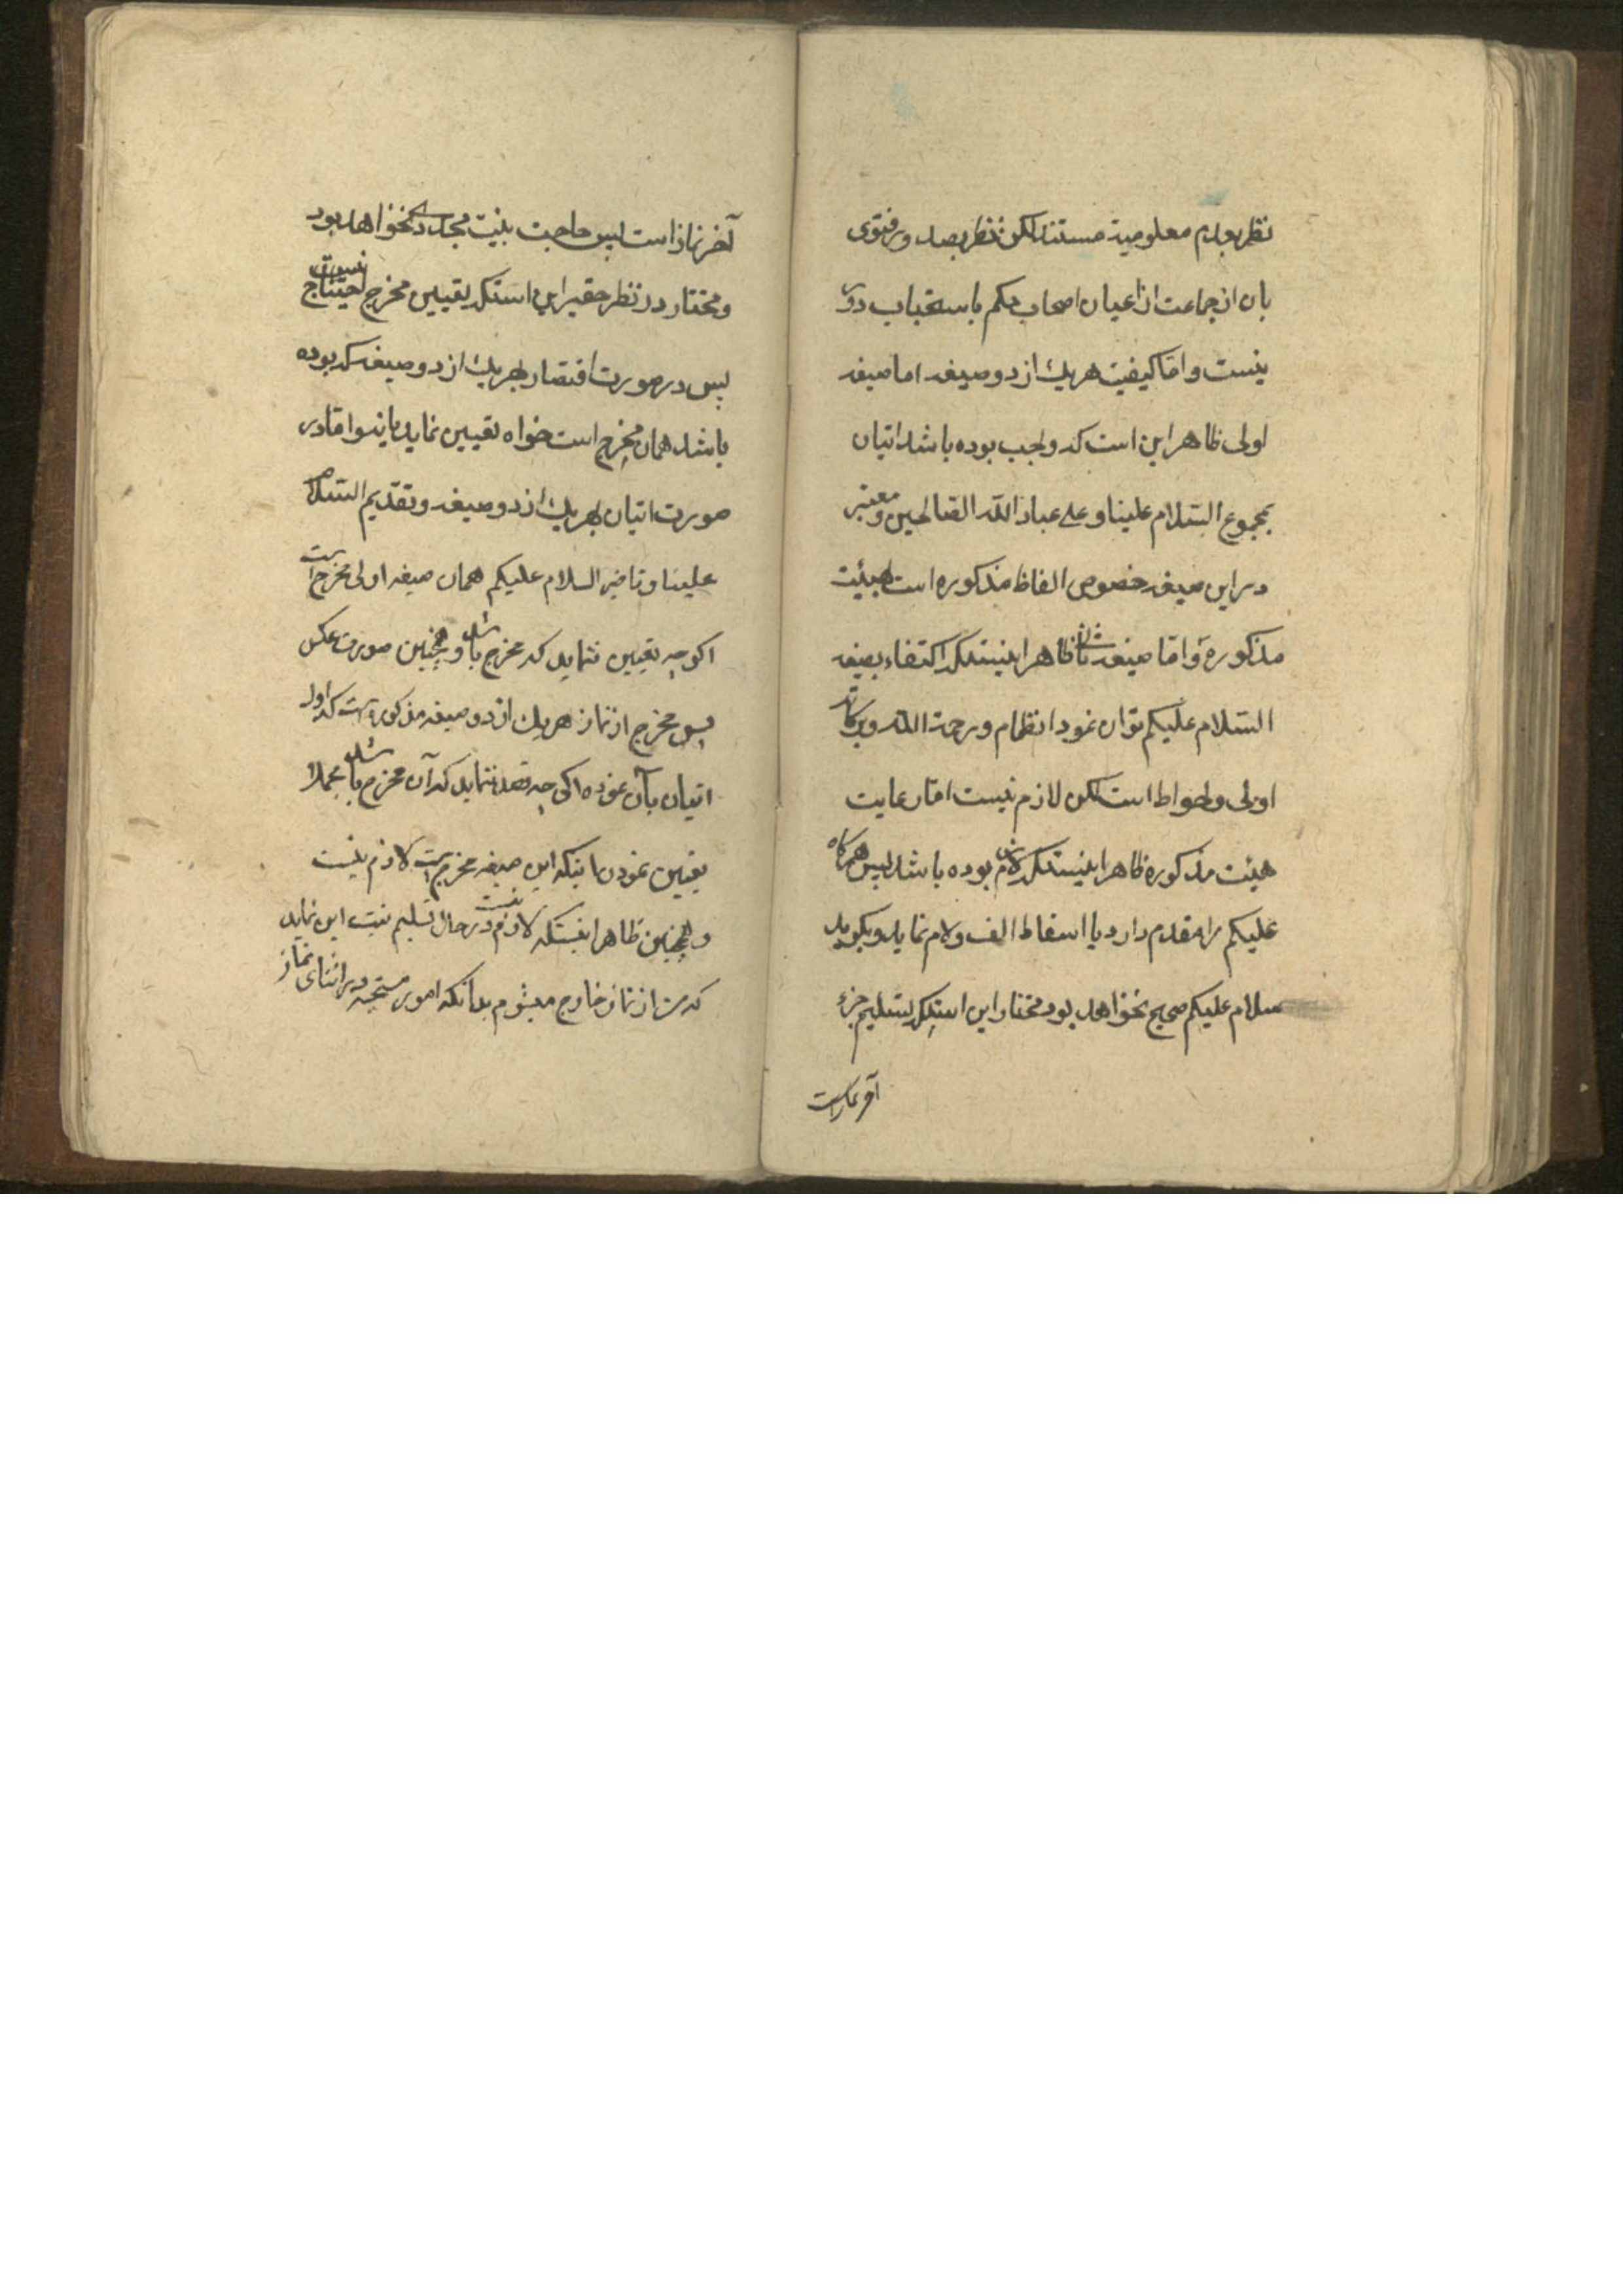 نظر بعدم معلومیة مستند لکن نظر بصدور فتوی
بان از جماعت از اعیان اصحاب حکم باستحباب دور
نیست و امّا کیفیت هر یک از دو صیغه اما صیغه
اولی ظاهر این است که واجب بوده باشد اتیان
بمجموع السّلام علینا و علی عباد اللّه الصّالحین و معتبر
در این صیغه خصوص الفاظ مذکوره است بهیئت
مذکوره و امّا صیغه ثانیه ظاهر اینستکه اکتفاء بصیغه
السّلام علیکم توان نمود انضمام و رحمة اللّه و برکاته
اولی و احواط است لکن لازم نیست امّا رعایت
هیئت مذکوره ظاهر اینستکه لازم بوده باشد پس هرگاه
علیکم را مقدم دارد یا اسقاط الف و لام نماید و بگوید
سلام علیکم صحیح نخواهد بود مختار این استکه تسلیم جزء
آخر نماز است
آخر نماز است پس حاجت بنیت مجددی نخواهد بود
و مختار در نظر حقیر این استکه تعیین مخرج احتیاج نیست
پس در صورت اقتصار بهر یک از دو صیغه که بوده
باشد همان مخرج است خواه تعیین نماید یا نه و امّا در
صورت اتیان بهر یک از دو صیغه و تقدیم السّلام
علینا و تاخیر السلام علیکم همان صیغه اولی مخرج است
اگرچه تعیین ننماید که مخرج باشد و همچنین صورت عکس
پس مخرج از نماز هر یک از دو صیغه مذکوره است که اولا
اتیان بآن نموده اگرچه قصد ننماید که آن مخرج باشد مجملا
تعیین نمودن باینکه این صیغه مخرج است لازم نیست
و همچنین ظاهر اینستکه لازم نیست در حال تسلیم نیت این نماید
که من از نماز خارج میشوم بدانکه امور مستحبه در اثنای نماز